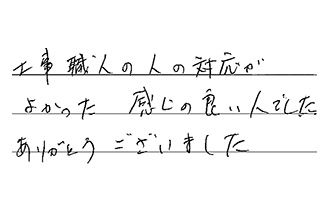 工事職人の人の対応が
よかった 感じの良い人でした
ありがとうございました